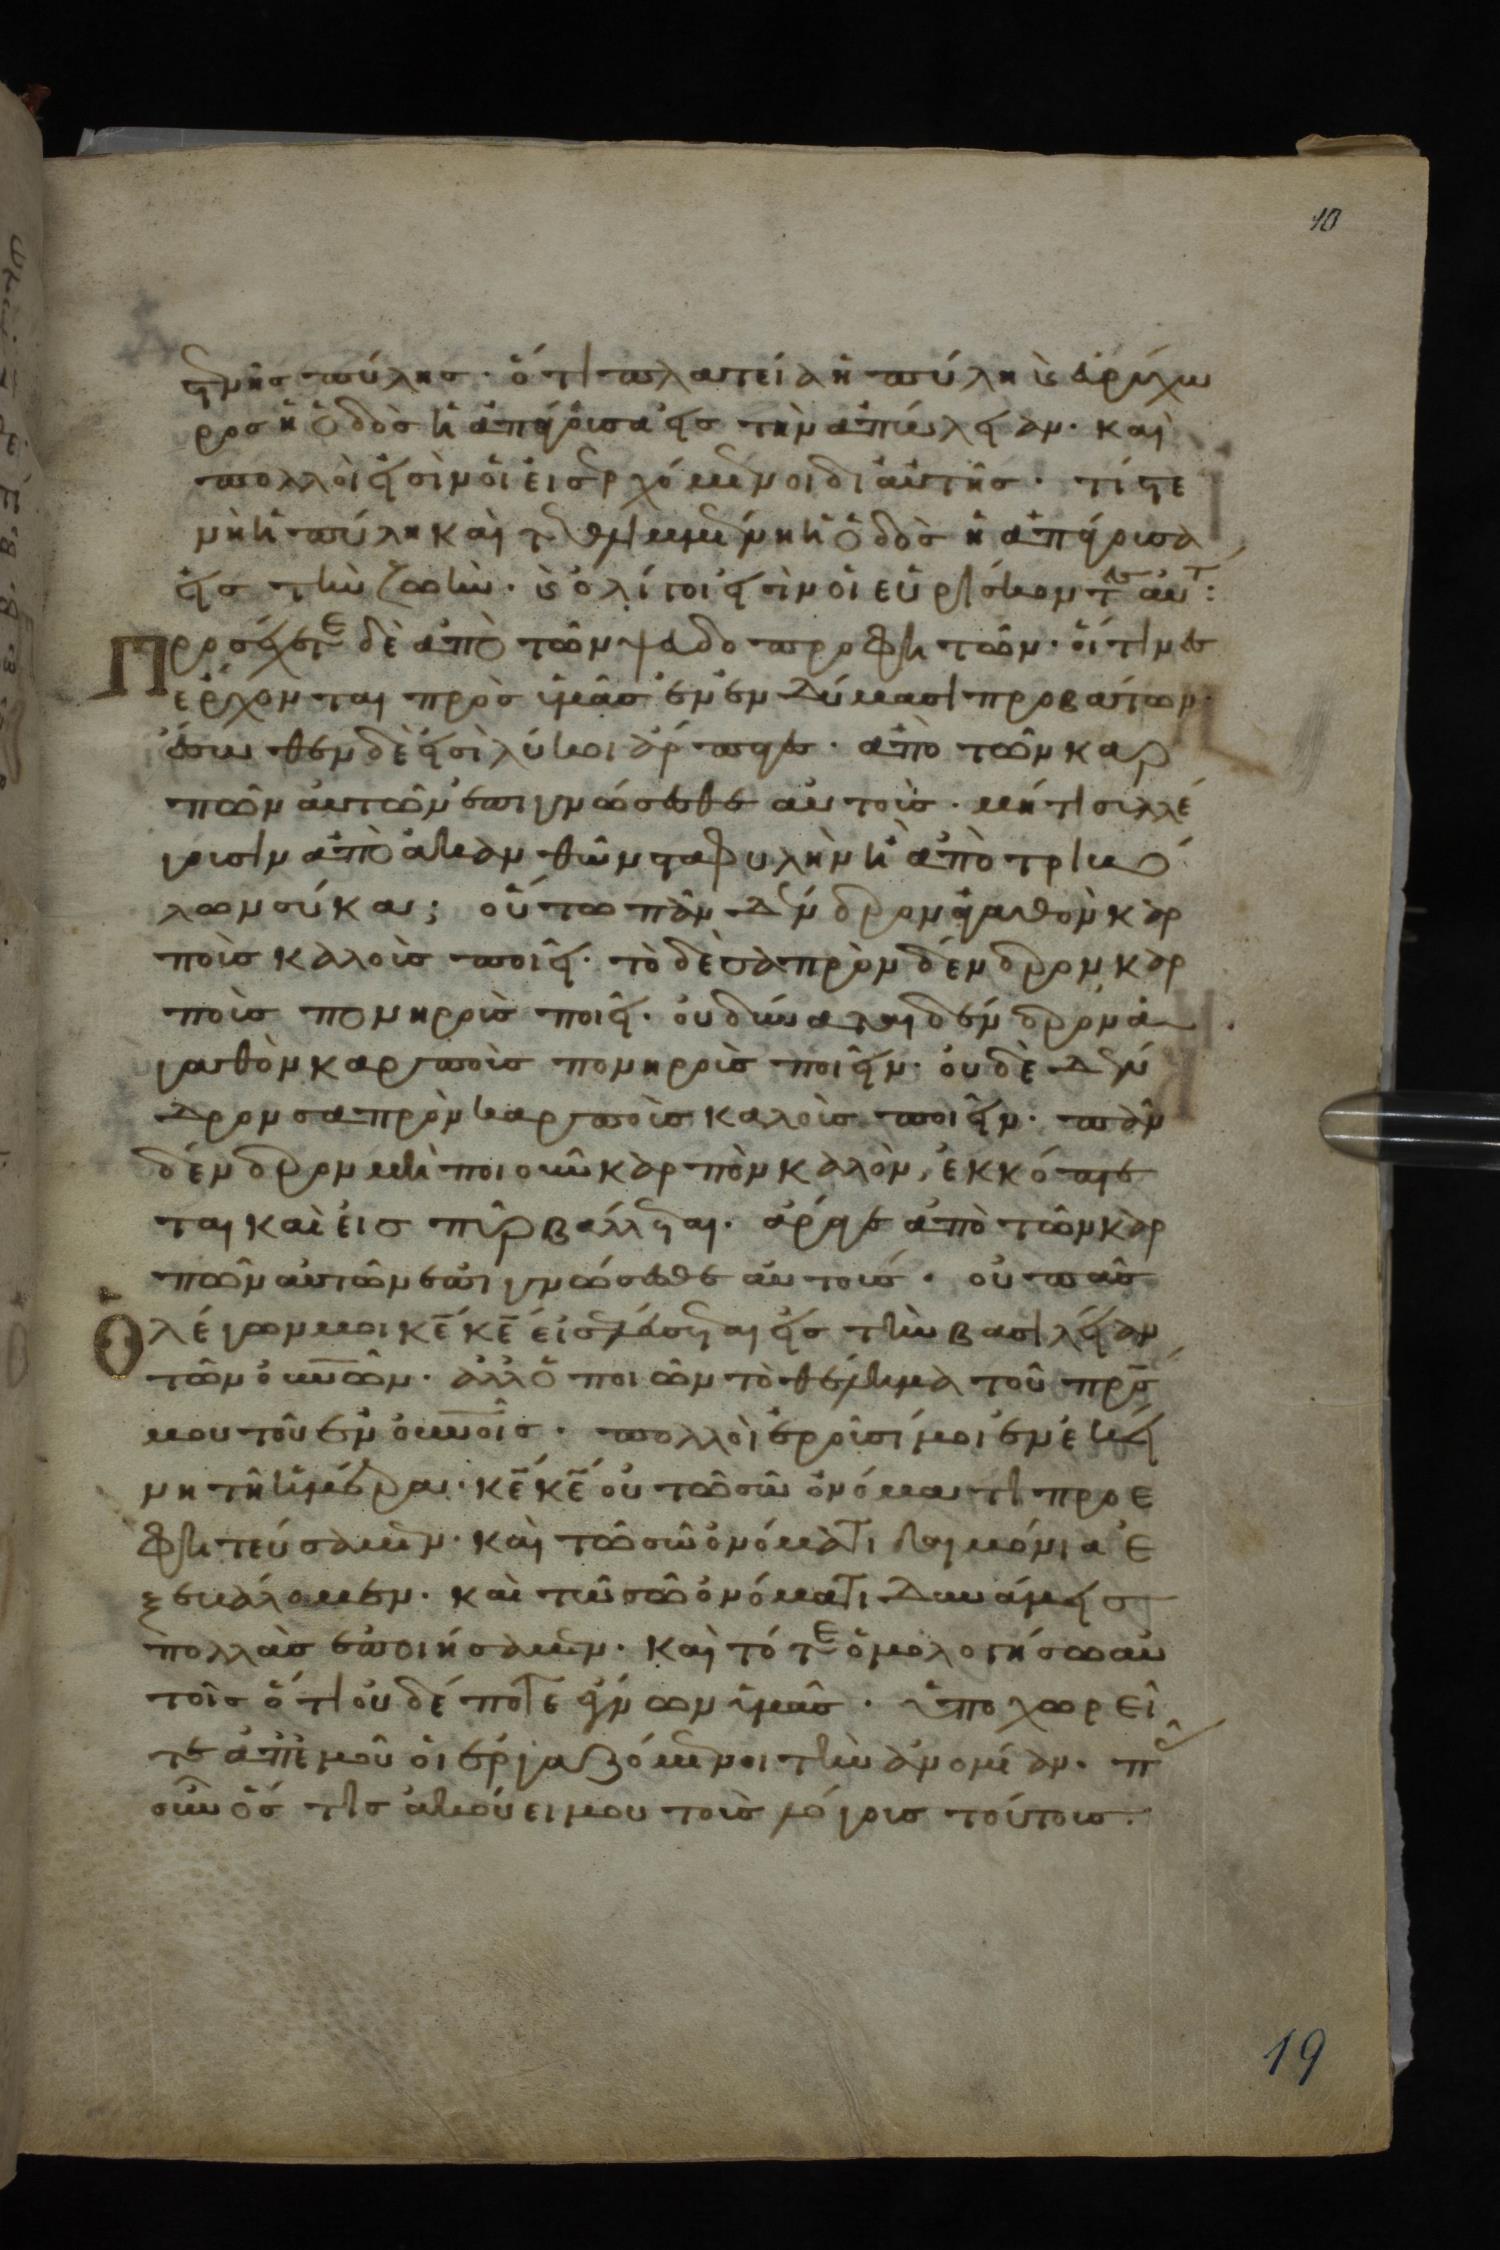 10
στενῆς πύλης· ὅτι πλατεῖα ἡ πύλη καὶ εὐρύχω
ρος ἡ ὁδὸς ἡ ἀπάγουσα εἰς τὴν ἀπώλειαν· καὶ
πολλοὶ εἰσὶν οἱ εἰσερχόμενοι δι αὐτῆς· τί στε
νὴ ἡ πύλη καὶ τεθλιμμένη ἡ ὁδὸς ἡ ἀπάγουσα
εἰς τὴν ζωὴν· καὶ ὀλίγοι εἰσὶν οἱ εὑρίσκοντες αὐτ:
Προσέχετε δὲ ἀπὸ τῶν ψευδοπροφητῶν· οἵτινες
ἔρχονται πρὸς ὑμᾶς ἐν ἐνδύμασι προβάτων·
ἔσωθεν δὲ εἰσὶ λύκοι ἅρπαγες· ἀπὸ τῶν καρ
πῶν αὐτῶν ἐπιγνώσεσθε αὐτοὺς· μήτι συλλέ
γουσιν ἀπὸ ἀκανθῶν σταφυλὴν ἢ ἀπὸ τριβό
λων σύκα; οὕτω πᾶν δένδρον ἀγαθὸν καρ
ποὺς καλοὺς ποιεῖ· τὸ δὲ σαπρὸν δένδρον καρ
ποὺς πονηροὺς ποιεῖ· οὐ δύναται δένδρον ἀ
γαθὸν καρποὺς πονηροὺς ποιεῖν· οὐδὲ δέν
δρον σαπρὸν καρποὺς καλοὺς ποιεῖν· πᾶν
δένδρον μὴ ποιοῦν καρπὸν καλὸν, ἐκκόπτε
ται καὶ εἰς πῦρ βάλλεται· ἄραγε ἀπὸ τῶν καρ
πῶν αὐτῶν ἐπιγνώσεσθε αὐτούς· οὐ πᾶς
Ὁ λέγων μοι κ̅ε̅ κ̅ε̅ εἰσελεύσεται εἰς τὴν βασιλείαν
τῶν οὐνῶν· ἀλλ ὁ ποιῶν τὸ θέλημα τοῦ πρς
μου τοῦ ἐν οὐνοῖς· πολλοὶ ἐροῦσί μοι ἐν ἐκεί
νη τῇ ἡμέρα· κ̅ε̅ κ̅ε̅ οὐ τῶ σῶ ὀνόματι προε
φητεύσαμεν· καὶ τῶ σῶ ὀνόματι δαιμόνια ἐ
ξεβάλομεν· καὶ τῶ σῶ ὀνόματι δυνάμεις
πολλὰς ἐποιήσαμεν· καὶ τότε ὁμολογήσω αὐ
τοῖς ὅτι οὐδέποτε ἔγνων ὑμᾶς· ἀποχωρεῖ
τε ἀπ ἐμοῦ οἱ ἐργαζόμενοι τὴν ἀνομίαν· πᾶς
οὖν ὅς τις ἀκούει μου τοὺς λόγους τούτους·
19